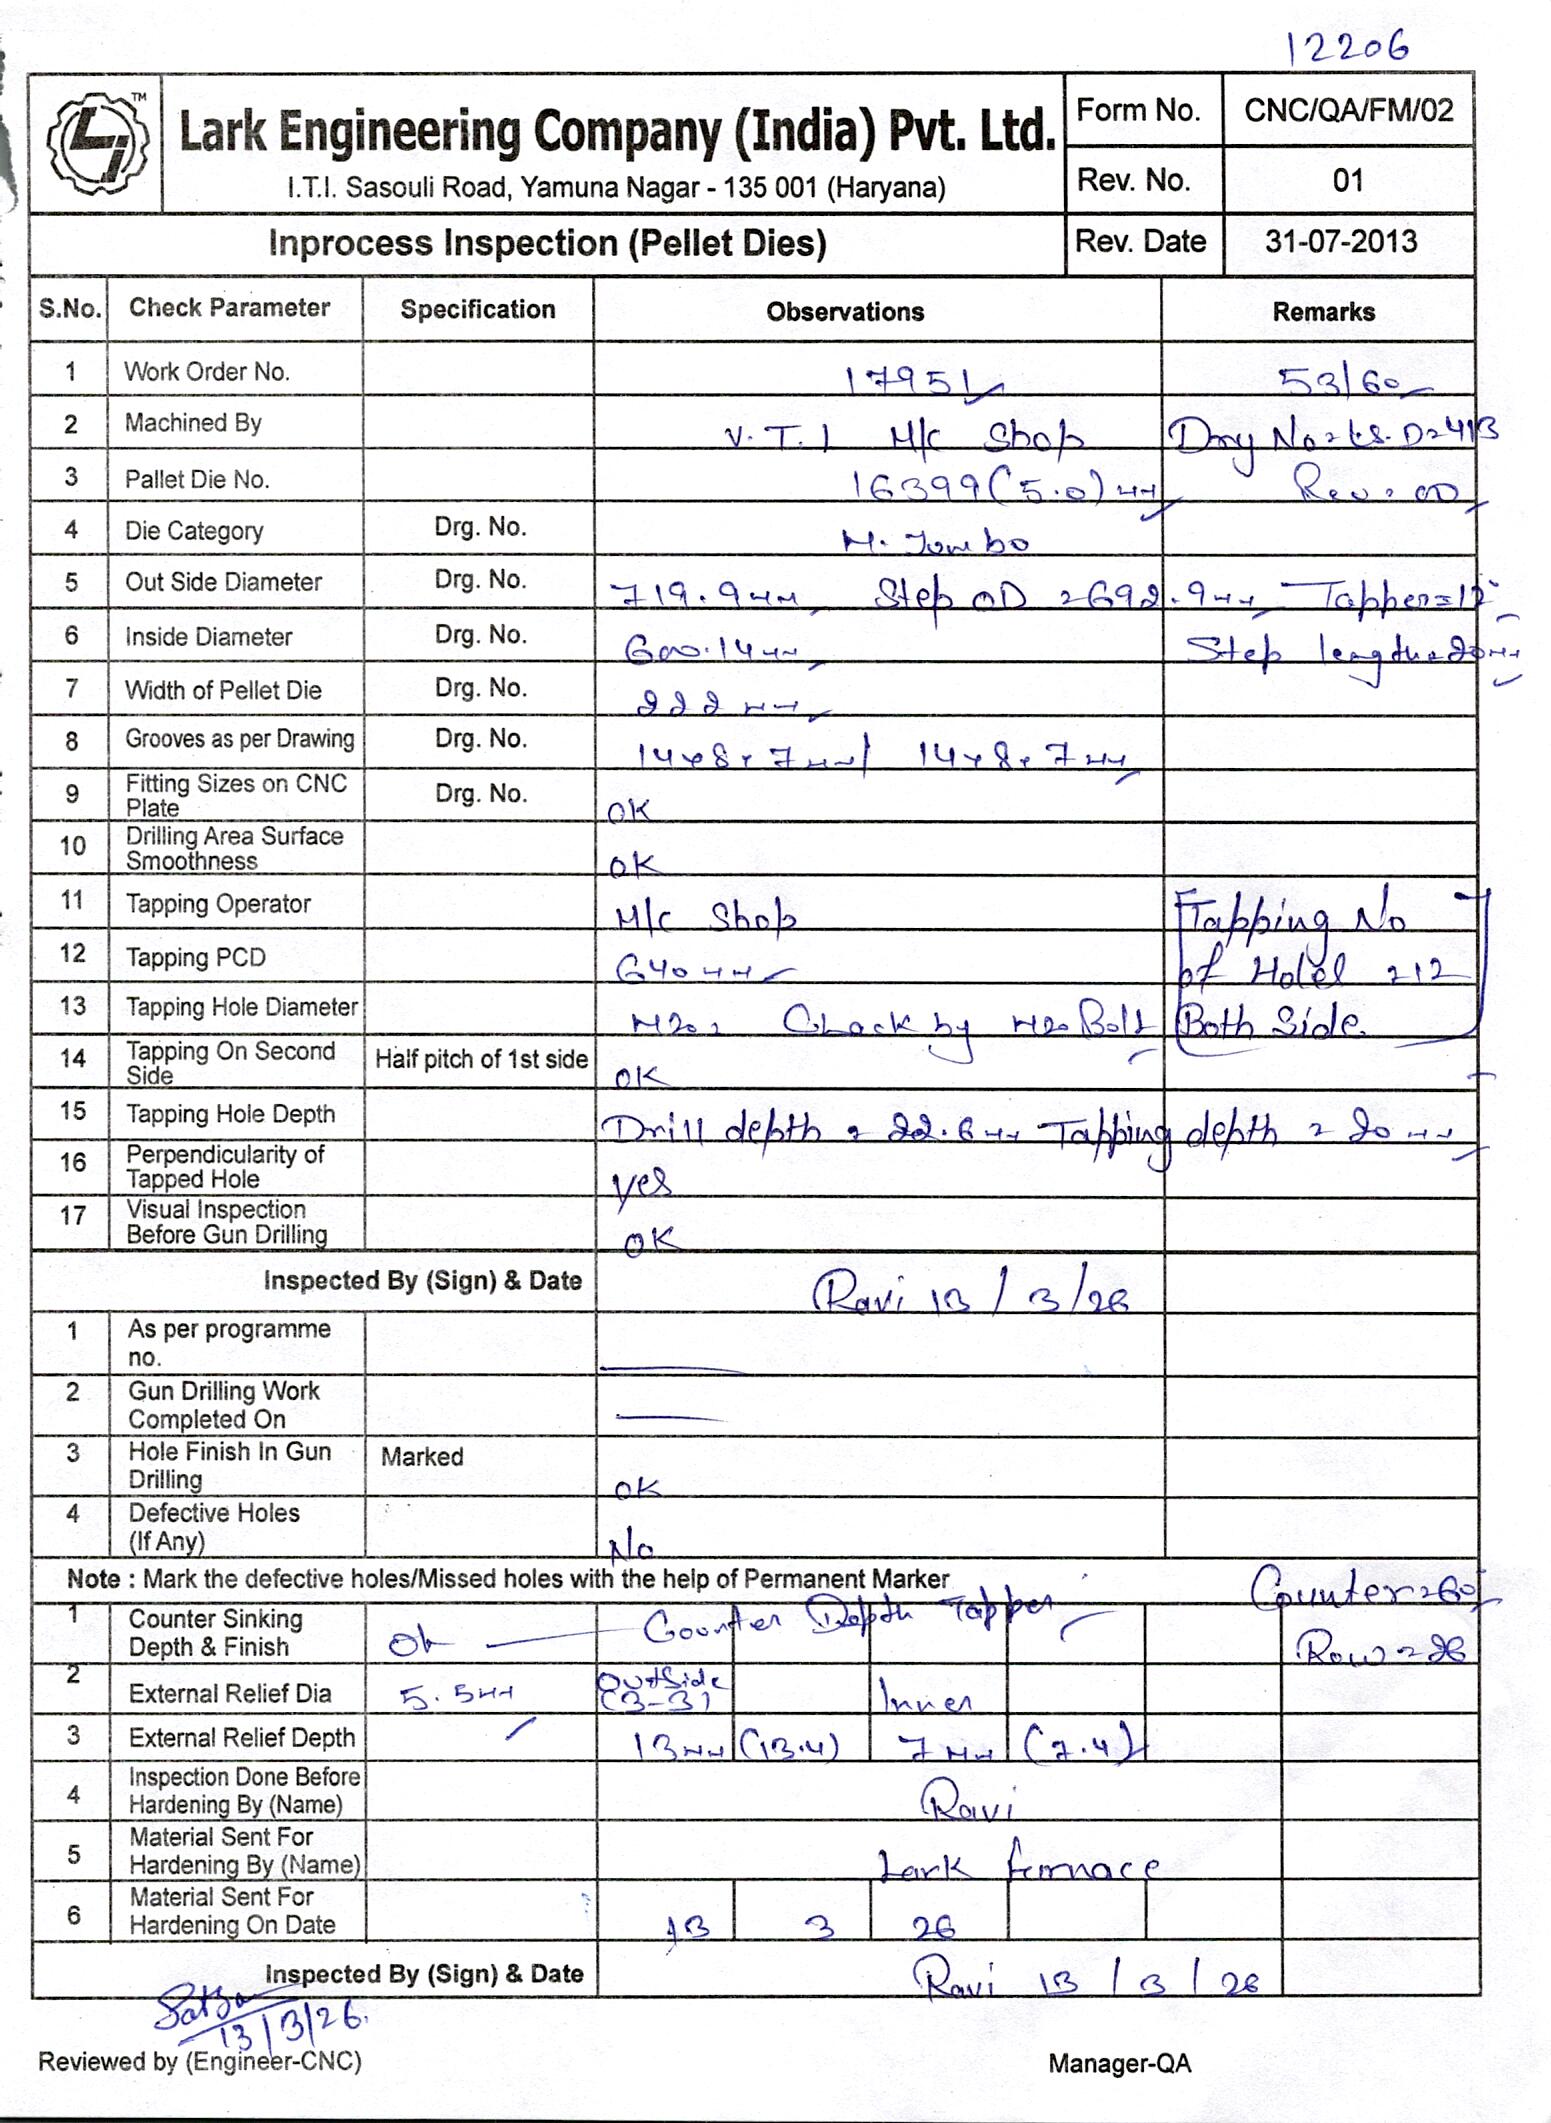 12206
TM
Lark Engineering Company (India) Pvt. Ltd.
I.T.I. Sasouli Road, Yamuna Nagar - 135 001 (Haryana)
Form No. CNC/QA/FM/02
Rev. No. 01
Inprocess Inspection (Pellet Dies) Rev. Date 31-07-2013
S.No. Check Parameter Specification Observations Remarks
1 Work Order No. 17951 53/60
2 Machined By V.T.I M/c Shop Drg No = LS.D=413
3 Pallet Die No. 16399(5.0)mm Rev = 00
4 Die Category Drg. No. M. Jumbo
5 Out Side Diameter Drg. No. 719.9mm Step OD = 692.9mm Tapper=12°
6 Inside Diameter Drg. No. 600.14mm Step length=20mm
7 Width of Pellet Die Drg. No. 222mm
8 Grooves as per Drawing Drg. No. 14x8x7mm/ 14x8x7mm
9 Fitting Sizes on CNC Plate Drg. No. OK
10 Drilling Area Surface Smoothness OK
11 Tapping Operator M/c Shop [Tapping No
12 Tapping PCD 640mm of Holes = 12
13 Tapping Hole Diameter M20 = Check by M20 Bolt Both Side]
14 Tapping On Second Side Half pitch of 1st side OK
15 Tapping Hole Depth Drill depth = 22.6mm Tapping depth = 20mm
16 Perpendicularity of Tapped Hole yes
17 Visual Inspection Before Gun Drilling OK
Inspected By (Sign) & Date Ravi 13/3/26
1 As per programme no.
2 Gun Drilling Work Completed On
3 Hole Finish In Gun Drilling Marked OK
4 Defective Holes (If Any) No
Note : Mark the defective holes/Missed holes with the help of Permanent Marker Counter=60°
1 Counter Sinking Depth & Finish Ok Counter Depth Tapper Row = 26
2 External Relief Dia 5.5mm Outside (3-3) Inner
3 External Relief Depth 13mm (13.4) 7mm (7.4)
4 Inspection Done Before Hardening By (Name) Ravi
5 Material Sent For Hardening By (Name) Lark furnace
6 Material Sent For Hardening On Date 13 3 26
Inspected By (Sign) & Date Ravi 13/3/26
13/3/26.
Reviewed by (Engineer-CNC) Manager-QA